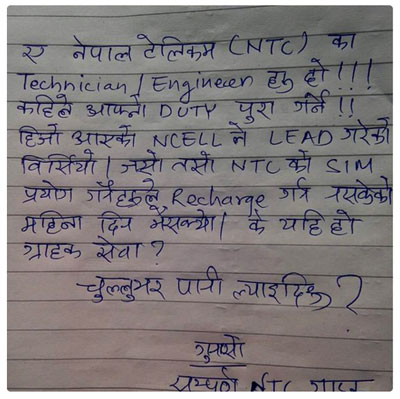 ए नेपाल टेलिकम (NTC) का
Technician / Engineer हरु हो !!!
कहिले आफ्नो DUTY पुरा गर्ने !!
हिजो आएको NCELL ले LEAD गरेको
बिर्सियौ । जसो तसो NTC को SIM
प्रयोग गर्नेहरुले Recharge गर्न नसकेको
महिना दिन भैसक्यो । के यहि हो
ग्राहक सेवा ?
चुल्लुभर पानी ल्याइदिऊ ?
सम्पूर्ण NTC